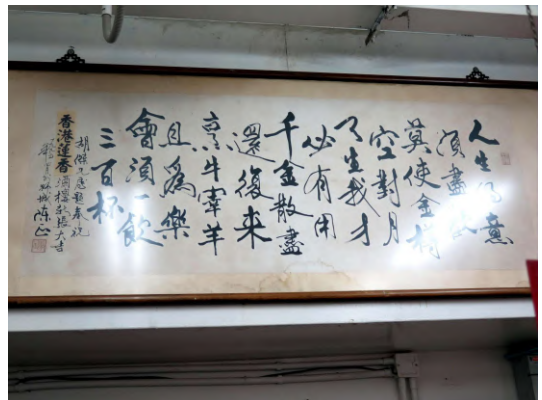 人生得意
須盡歡
莫使金樽
空對月
天生我才
必有用
千金散盡
還復来
烹牛宰羊
且爲樂
會須一飲
三百杯
胡傑兄題奉祝
香港蓮香酒樓新張大吉
城陳正